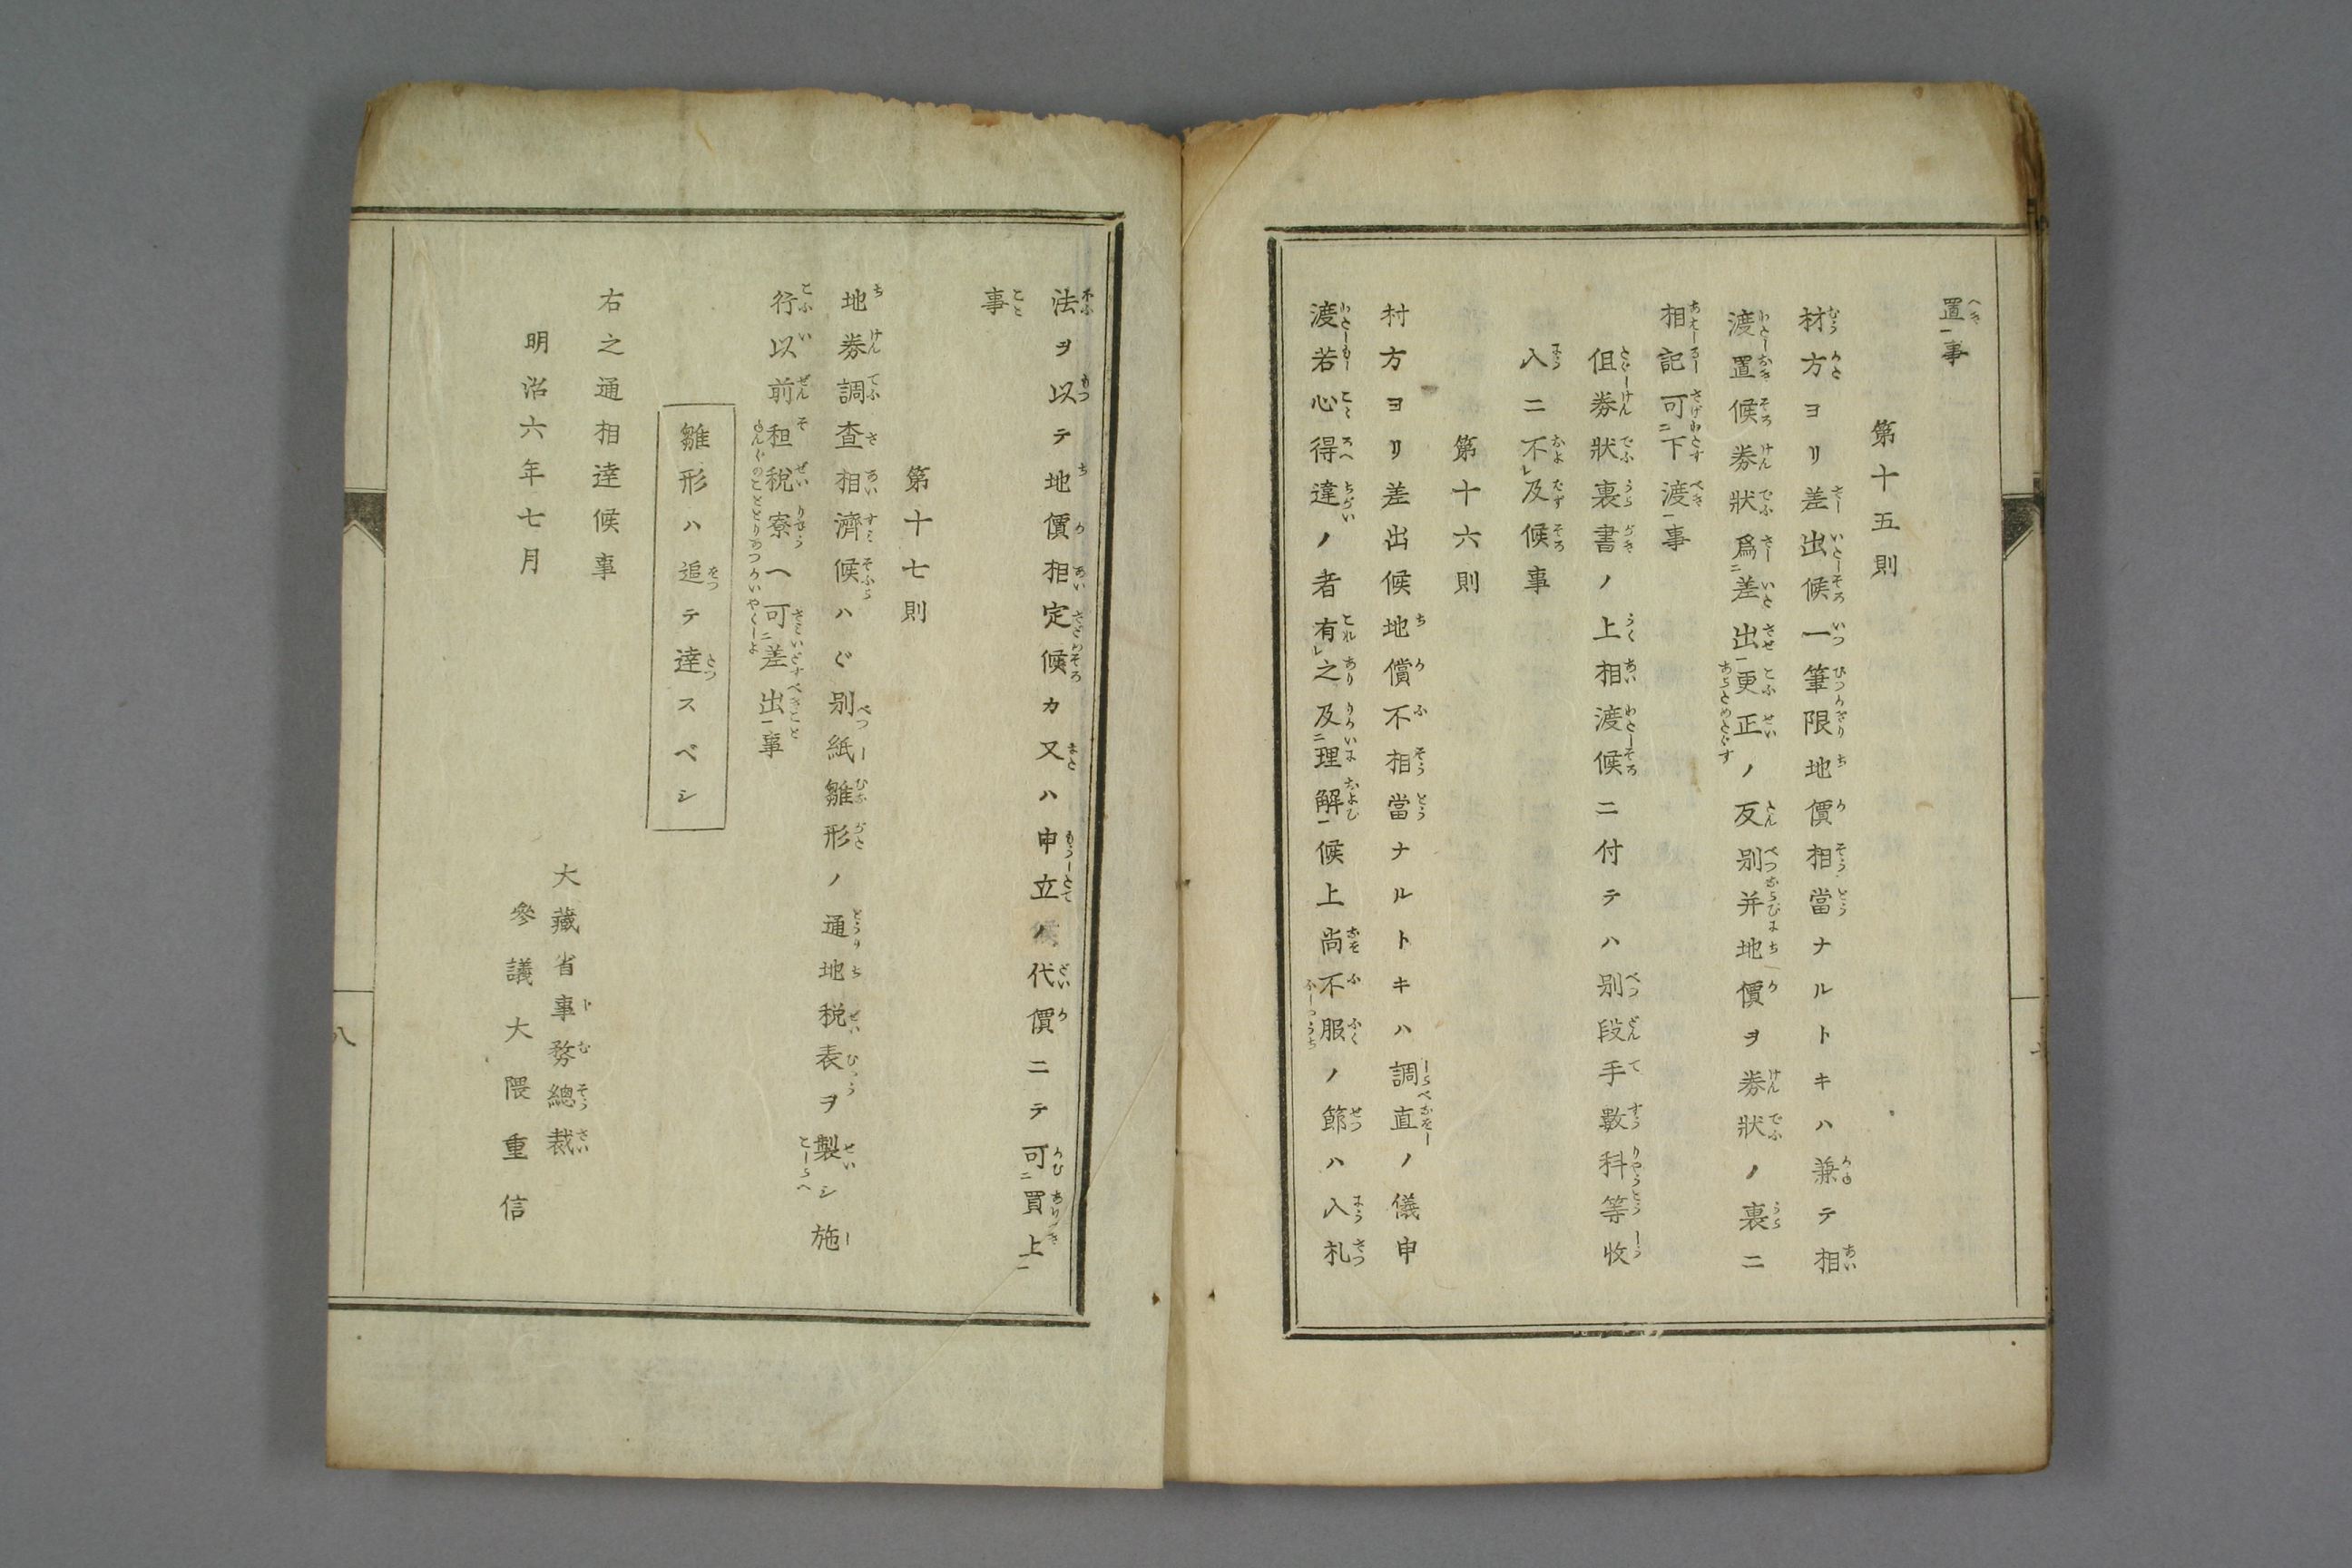 置一事
第十五則
村方ヨリ差出候一筆限地價相當ナルトキハ兼テ相
渡置候券狀爲二差出一更正ノ反別并地價ヲ券狀ノ裏ニ
相記可二下渡一事
但券狀裏書ノ上相渡候ニ付テハ別段手數料等收
入ニ不レ及候事
第十六則
村方ヨリ差出候地償不相當ナルトキハ調直ノ儀申
渡若心得違ノ者有レ之及二理解一候上尚不服ノ節ハ入札
法ヲ以テ地價相定候カ又ハ申立ノ代價ニテ可二買上一
事
第十七則
地券調查相濟候ハヾ別紙雛形ノ通地税表ヲ製シ施
行以前租税寮ヘ可二差出一事
雛形ハ追テ達スベシ
右之通相達候事
明治六年七月
大藏省事務總裁
參議大隈重信
八